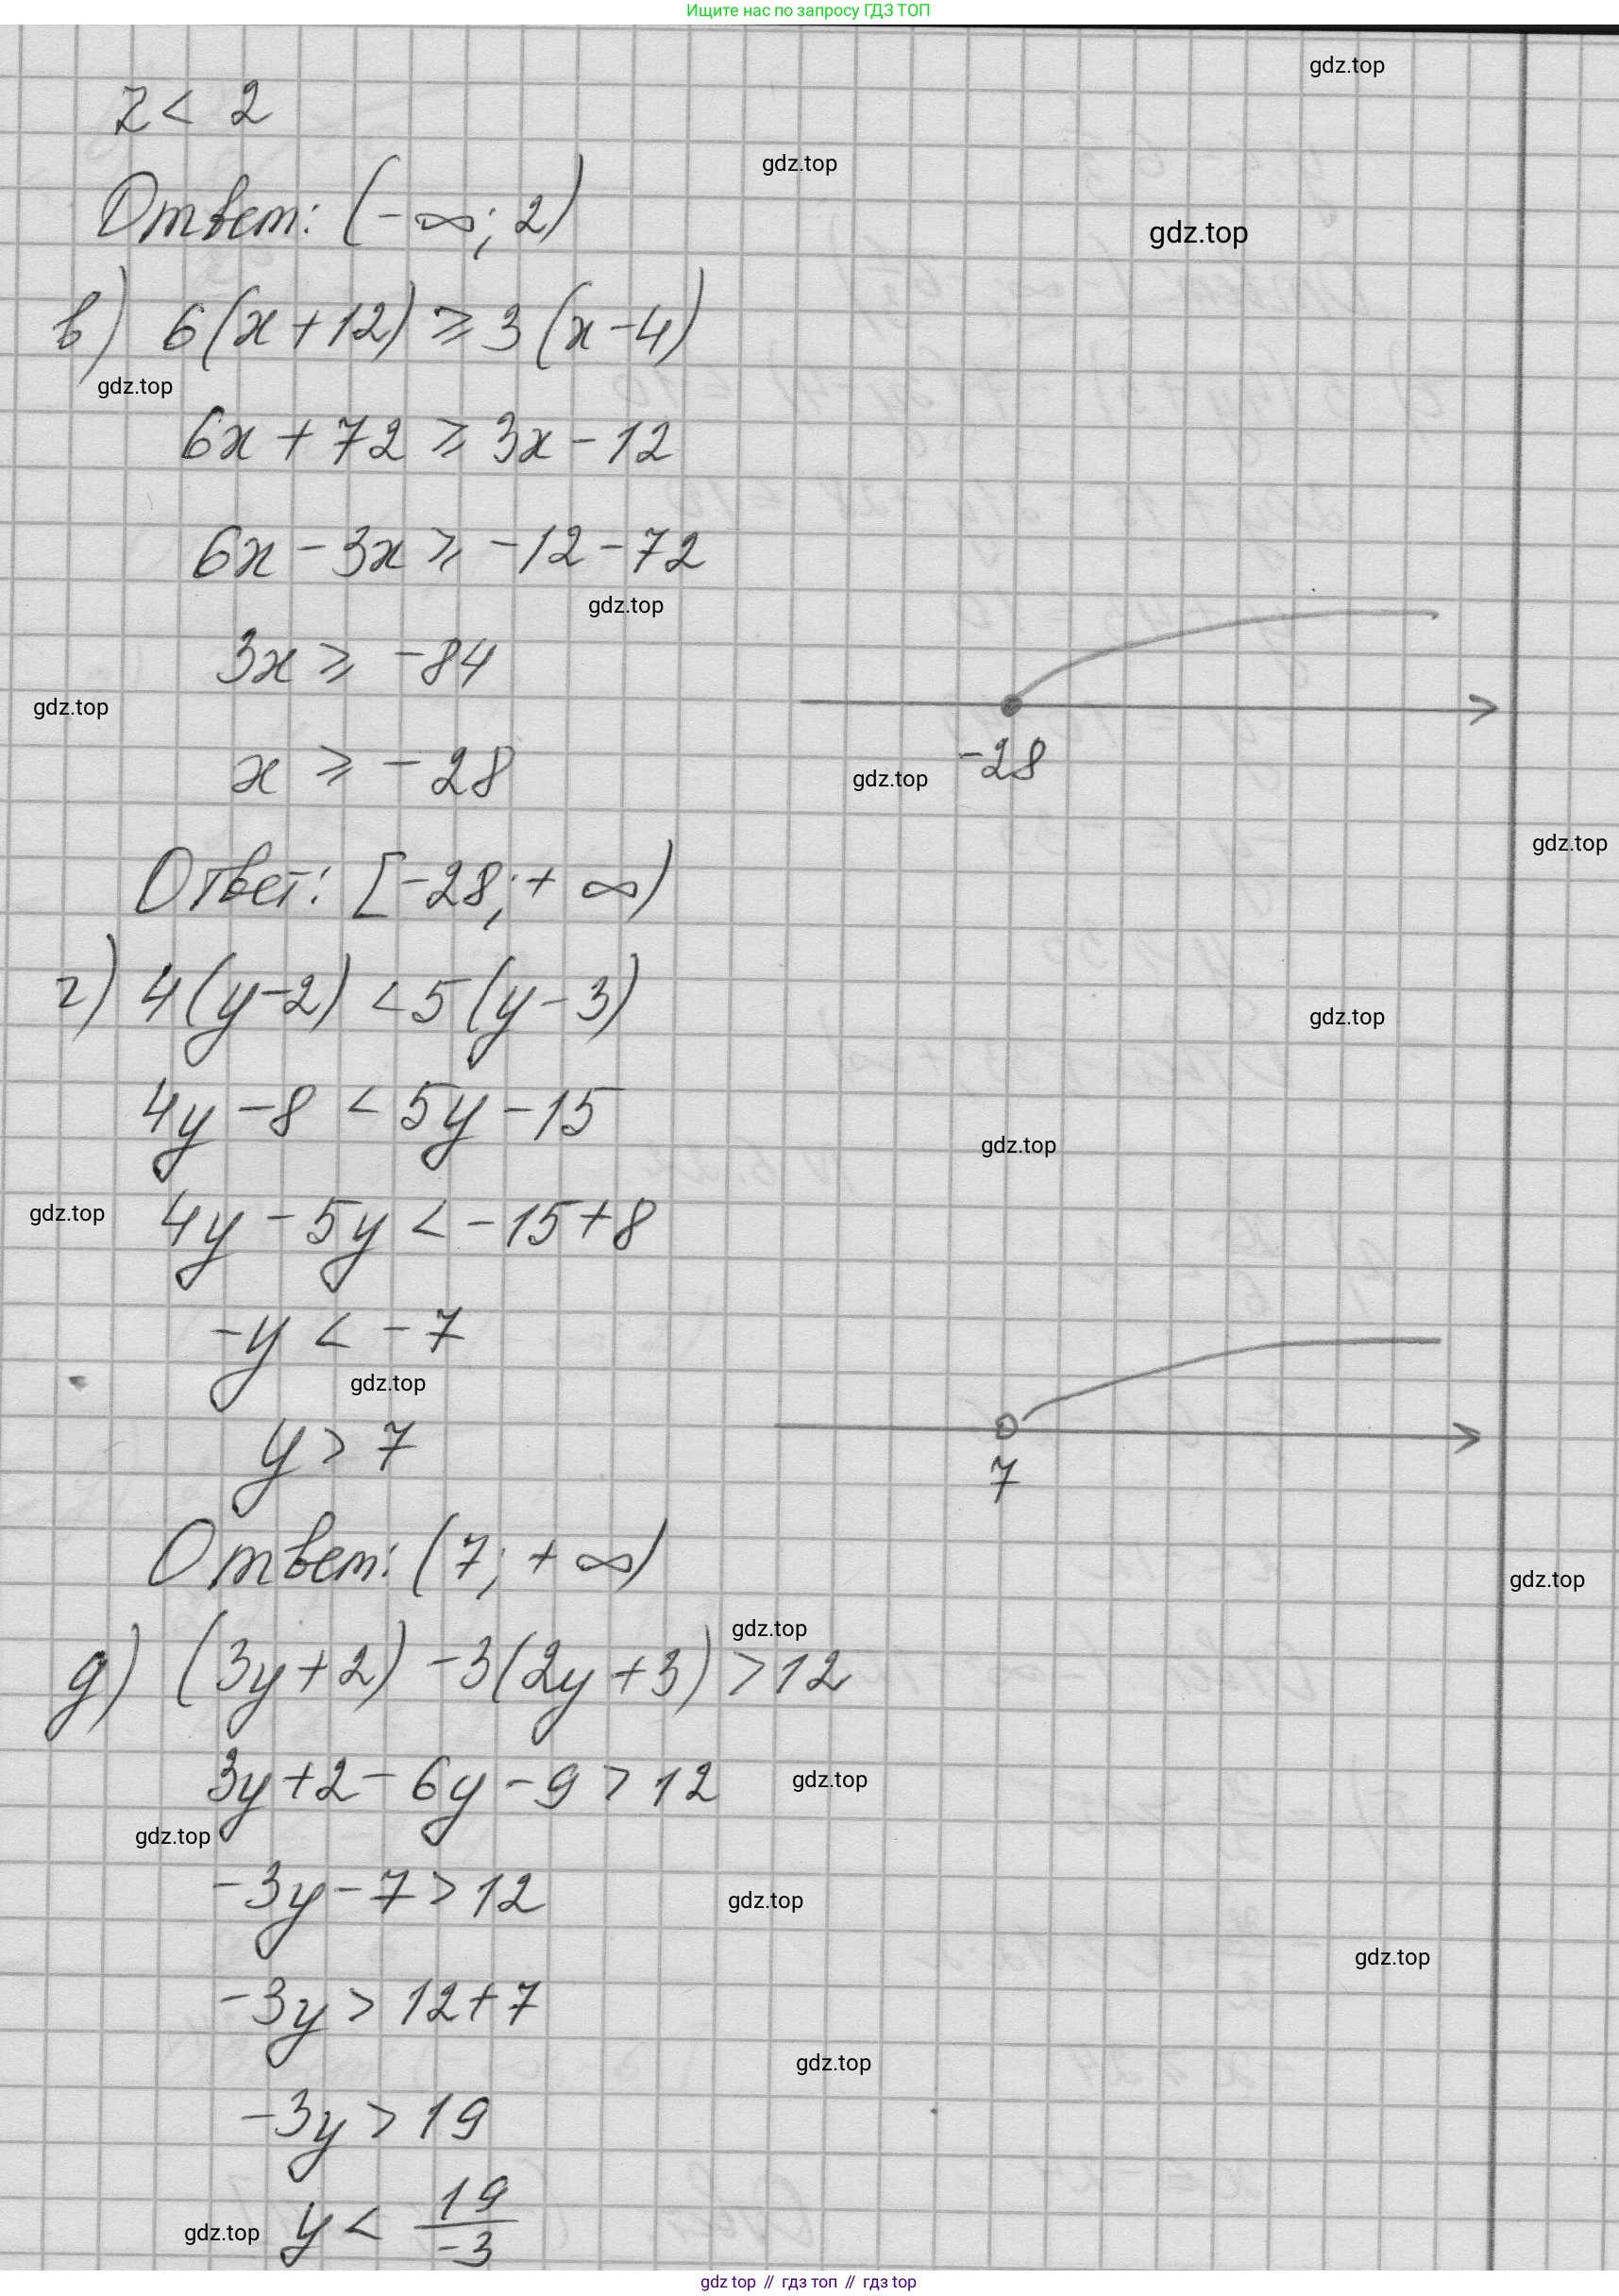 Ищите нас по запросу ГДЗ ТОП
gdz.top
z < 2
gdz.top
Ответ: (-∞; 2)
gdz.top
в) 6(x+12) ⩾ 3(x-4)
gdz.top
6x + 72 ⩾ 3x - 12
6x - 3x ⩾ -12 - 72
gdz.top
3x ⩾ -84
gdz.top
x ⩾ -28
gdz.top
-28
gdz.top
Ответ: [-28; + ∞)
г) 4(y-2) < 5(y-3)
gdz.top
4y - 8 < 5y - 15
gdz.top
gdz.top
4y - 5y < -15+8
-y < -7
gdz.top
y > 7
7
Ответ: (7; + ∞)
gdz.top
gdz.top
д) (3y+2) -3(2y+3) > 12
3y+2 - 6y - 9 > 12
gdz.top
gdz.top
-3y - 7 > 12
gdz.top
gdz.top
-3y > 12+7
gdz.top
-3y > 19
gdz.top
y < 19/-3
gdz top // гдз топ // гдз top